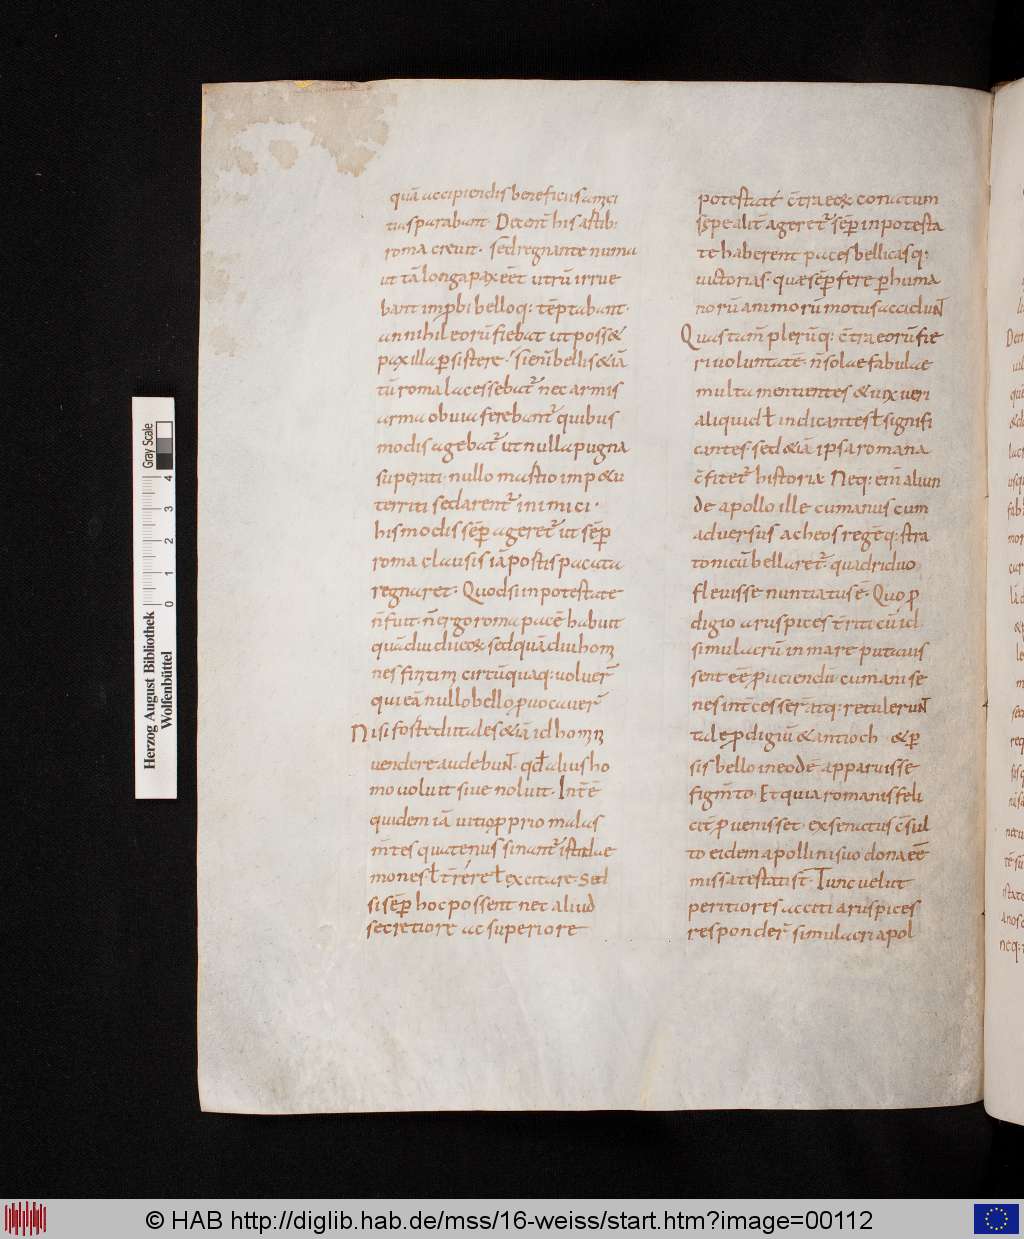 quā accipiendis beneficiis amici
tias parabant. Decent̄ his artib;
roma creuit. sed regnante numa
ut tā longa pax eēt utrū irrue
bant imp̱bi belloq; tēptabant.
an nihil eorū fiebat ut poss&
pax illa p̱sistere. si enī bellis &iā
tū roma lacessebat᷑ nec armis
arma obuia ferebant᷑ quibus
modis agebat᷑ ut nulla pugna
superati nullo martio imp&u
territi sedarent᷑ inimici.
his modis sēp̱ ageret᷑ ut sēp̱
roma clausis iā portis pacata
regnaret. Quod si in potestate
n̄ fuit. n̄ ergo roma pacē habuit
quādiu dii eoꝝ sed quādiu hom̄
nes finitimi circūquaq; uoluer̄
qui eā nullo bello p̱uocauer̄
Nisi forte dii tales &iā id homini
uendere audebuN̄. qđ alius ho
mo uoluit siue noluit. Int̄ē
quidem iā uitio p̱prio malas
m̄tes quatenus sinant᷑ isti dae
mones ł t̄rére ł excitare. Sed
si sēp̱ hoc possent nec aliud
secretiore ac superiore
potestate c̄tra eoꝝ conatum
sępe alit̄ ageret᷑ sēp̱ in potesta
te haberent paces bellicasq;
uictorias. quae sēp̱ fere p̱ huma
norū animorū motus acciduN̄
Quas tam̄ plerūq; c̄tra eorū fie
ri uoluntatē. n̄ solae fabulae
multa mentientes & uix ueri
aliquid ł indicantes ł signifi
cantes sed &iā ipsa romana
c̄fitet᷑ historia. Neq; enī aliun
de apollo ille cumanus cum
aduersus acheos regēq; aris
tonicū bellaret᷑. quadriduo
fleuisse nuntiatus ē. Quo p̱
digio aruspices t̄riti cū id
simulacrū in mare putauis
sent eē p̱uciendū cumani se
nes int̄cesser̄ atq; retuleruN̄
tale p̱digiū & antiochi & p̱
sis bello in eodē apparuisse
figm̄to. Et quia romanis feli
cit̄ p̱uenisset. ex senatus c̄sul
to eidem apollini suo dona eē
missa testati sī. Tunc uelut
peritiores acciti aruspices
responder̄ simulacri apol
Herzog August Bibliothek
Wolfenbüttel
0 1 2 3 4
Gray Scale
© HAB http://diglib.hab.de/mss/16-weiss/start.htm?image=00112